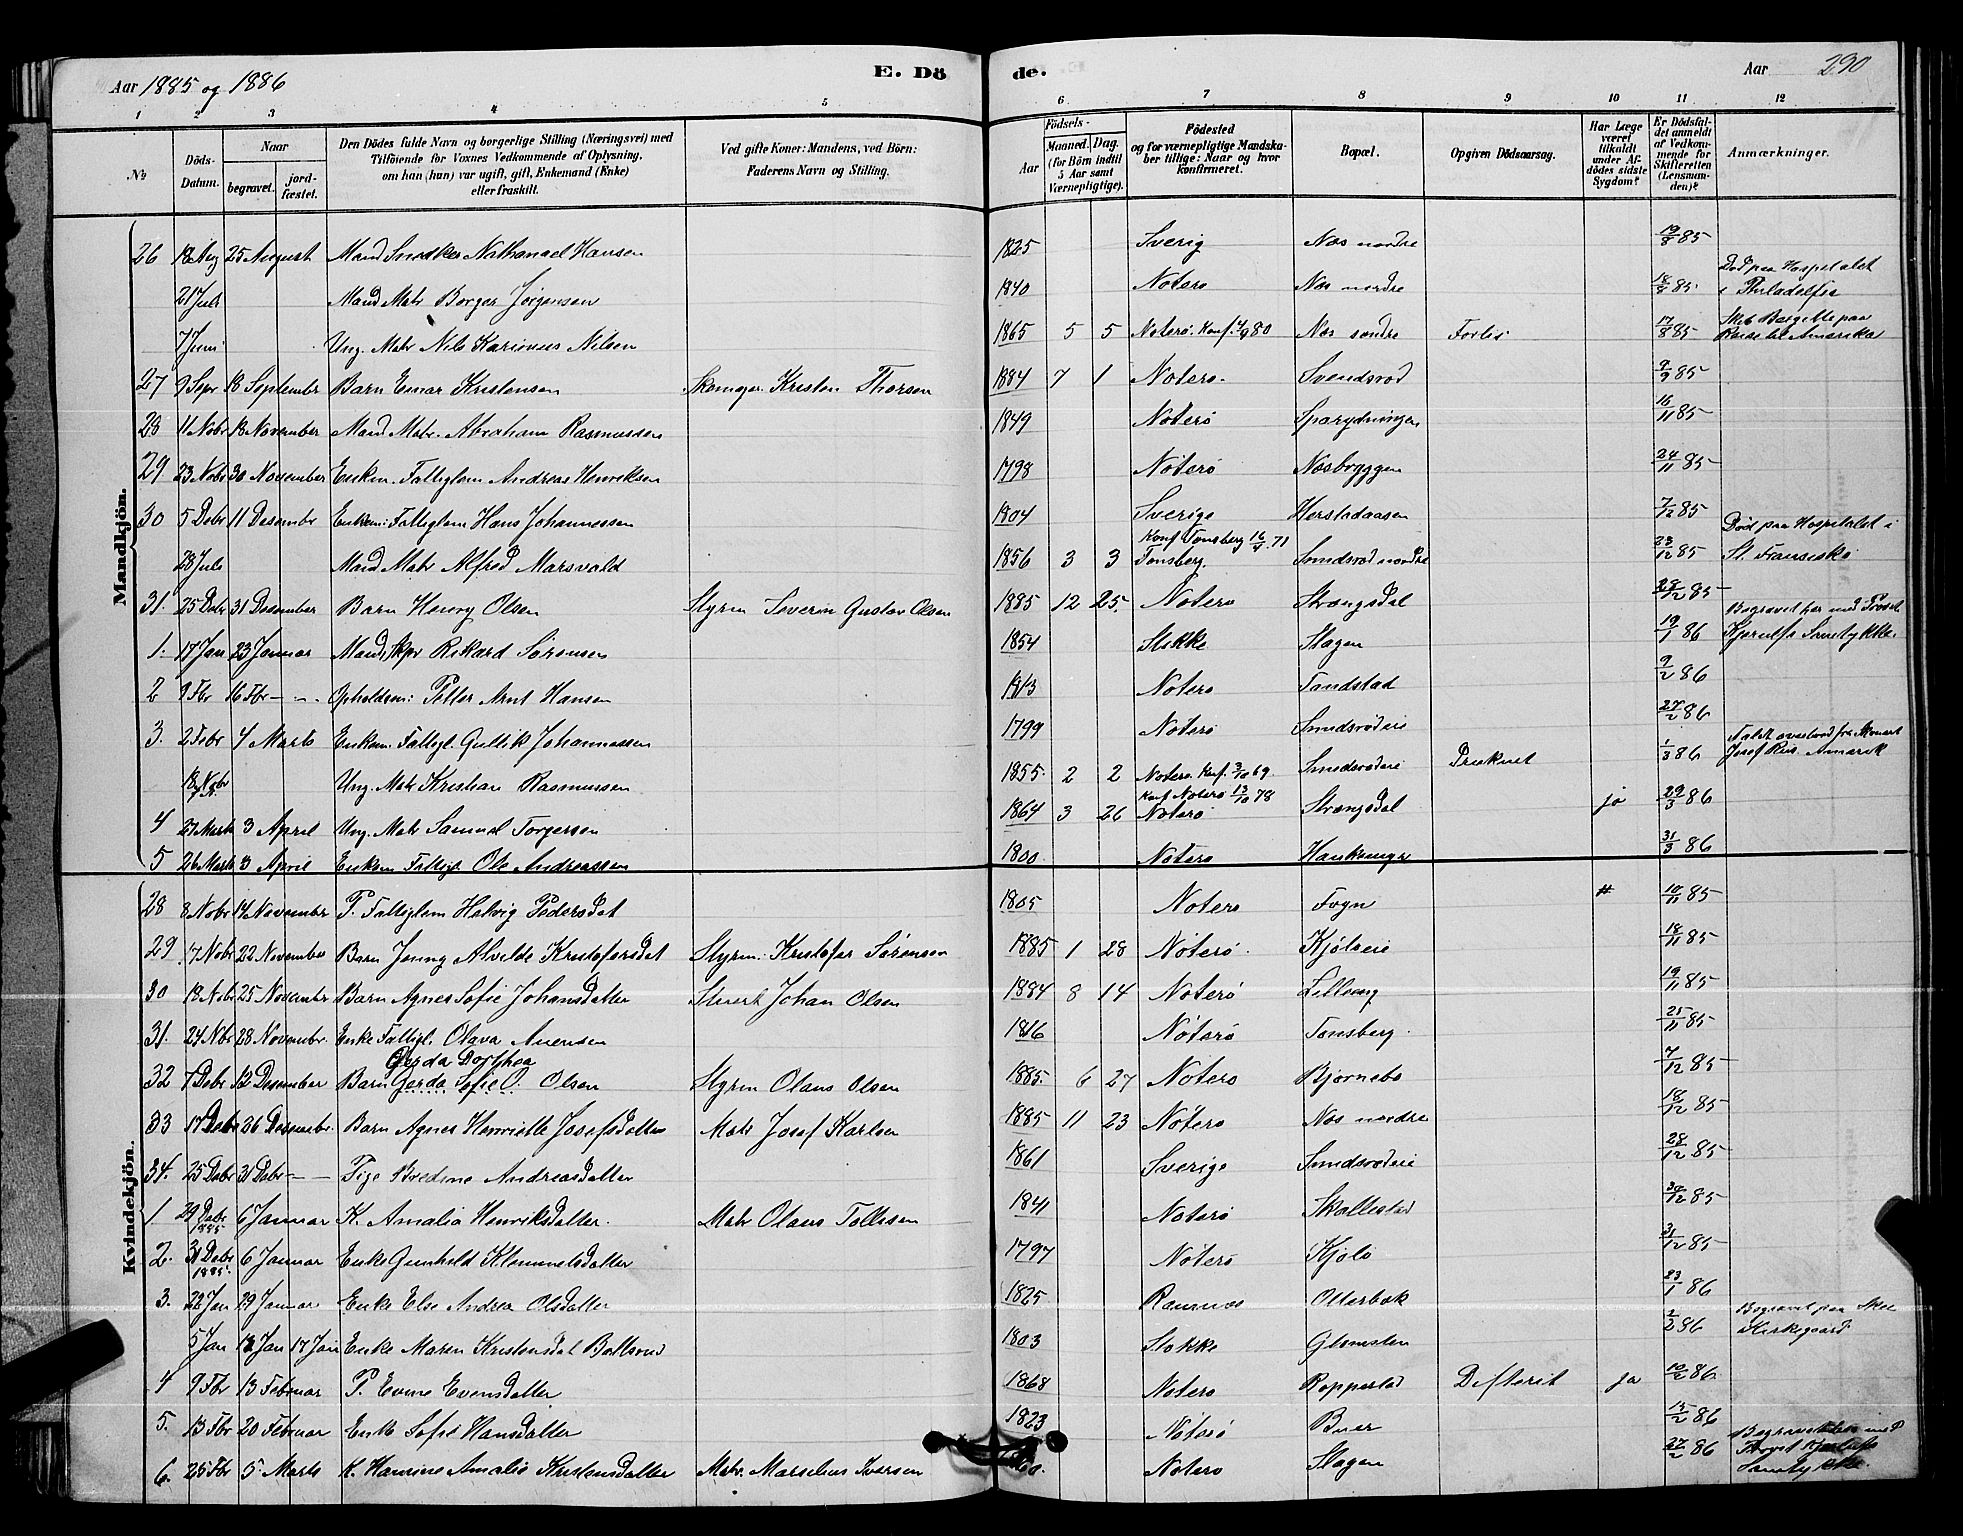 Aar 1885 og 1886
E. Dö
de.
Aar 290
1 2 3 4 5 6 7 8 9 10 11 12
No
Döds-Datum.
Naar
begravet.
jord-fæstet.
Den Dödes fulde Navn og borgerlige Stilling (Næringsvei) med
Tilföiende for Voxnes Vedkommende af Oplysning,
om han (hun) var ugift, gift, Enkemand (Enke)
eller fraskilt.
Ved gifte Koner: Mandens, ved Börn:
Faderens Navn og Stilling.
Födsels-
Aar
Maaned. Dag.
(for Börn indtil
5 Aar samt
Værnepligtige).
Födested
og for værnepligtige Mandska-
ber tillige: Naar og hvor
konfirmeret.
Bopæl.
Opgiven Dödsaarsag.
Har Læge
været
tilkaldt
under Af-
dödes sidste
Sygdom?
Er Dödsfal-
det anmeldt
af Vedkom-
mende for
Skifteretten
(Lensman-
den)?
Anmærkninger.
Mandkjön.
26 18 Aug 25 August Mand Snedker Nathanael Hansen 1825 Sverig Nes nordre 19/8 85
21 Juli Mand Matr Borger Jørgensen 1840 Noterø Nes nordre 18/8 85 Død paa Hospitalet i Philadelfia
7 Juni Ung. Matr Nils Karinius Nilsen 1865 5 5 Noterø. Konf. 4/9 80 Nes søndre Forlis 17/8 85 Reise til Amerika
27 9 Sepr 18 Septembr Barn Einar Kristensen Skomager Kristen Thorsen 1884 7 1 Noterø. Svendsrød 9/9 85
28 11 Nobr 18 November Mand Matr. Abraham Rasmussen 1849 Noterø 16/11 85
29 23 Nobr 30 November Enkm. Falliglem Andreas Henriksen 1798 Nøterø Nesbryggen 24/11 85
30 5 Debr 11 Desembr Enkem: Falliglem Hans Johannessen 1804 Sverige Herstadaasen 7/12 85
28 Juli Mand Matr Alfred Marsvold 1856 3 3 Konf Tønsberg 16/4. 71 Tønsberg. Smidsrød nordre 23/12 85 Død paa Hospitalet i St. Fransisko
31. 25 Debr 31 Desember Barn Henry Olsen Styrm Severin Gustav Olsen 1885 12 25. Noterø Strengsdal 28/12 85
1. 17 Jan 23 Januar Mand, Skpr Rikard Sørensen 1854 Stokke Slagen 19/1 86 Begravet her med Provst Kjerulfs Samtykke.
2 9 Fbr 16 Fbr - - Opholdsm: Petter Arnt Hansen 1813 Noterø Tandstad 9/2 86
3. 2 Febr 4 Marts Enkem. Falligl. Gullik Johannessen 1799 Noterø Smidsrødeie 27/2 86
18 Nobr Ung. Matr Kristian Rasmussen 1855. 2 2 Noterø. Konf. 3/10 69. Smidsrødeie Druknet 1/3 86
4 27 Marts 3 April Ung. Matr Samuel Torgersen 1864 3 26 Konf Noterø 13/10 78 Noterø Strengsdal ja 29/3 86
5 26 Marts 3 April Enkem Falligl. Ole Andreassen 1800 Noterø 31/3 86
Kvindekjön.
28 8 Nobr 14 November P. Falliglem Helvig Pedersdat 1805 Noterø Føyn 10/11 85
29 17 Nobr 22 November Barn Jenny Alvilde Kristofersdat Styrm. Kristofer Sørensen 1885 1 28 Nøterø. Kjøleie 18/11 85
30 18 Nobr 25 November Barn Agnes Sofie Johansdatter Stuert Johan Olsen 1884 8 14 Nøterø Lilleveg 19/11 85
31. 24 Nbr 28 Novembr. Enke Falligl. Olava Auensen 1816 Nøterø Tønsberg. 25/11 85
Gerda Dorthea
32 7 Debr 12 Desember Barn Gerda Sofie O. Olsen Styrm Olaus Olsen 1885. 6 27 Noterø Bjørnebo 7/12 85
33 17 Debr 26 Desembr. Barn Agnes Henriette Josefsdatter Matr Josef Karlsen 1885 11 23 Nøterø Nes nordre 18/12 85
34. 25 Debr 31 Debr - - Pige Bredine Andreasdatter 1861 Sverige Smidsrødeie 28/12 85
1 29 Debr 1885 6 Januar K. Amalia Henriksdatter. Matr Olaus Tollefsen 1841 Noterø Skallestad 30/12 85
2. 31 Debr 1885. 6 Januar Enke Gunhild Klemmetsdatter 1797 Nøterø Kjølø 31/12 85
3. 22 Jan 29 Januar Enke Else Andrea Olsdatter 1825 Ramnes Otterbek 23/1 86
5 Jan 13 Jan 17 Jan Enke Maren Kristensdat 1803 Stokke Glomsten 2/2 86 Begravet paa Kirkegaard
4 9 Fbr 13 Februar P. Evine Evensdatter 1868 Noterø Ropperstad Difterit ja 10/2 86
5. 13 Fbr 20 Februar Enke Sofie Hansdatter 1823 Nøterø Buer 15/2 86
6. 25 Fbr 5 Marts K. Hanrine Amalie Kristensdatter Matr. Marselius Iversen Noterø Slagen 27/2 86 Provst Kjerulfs Samtykke